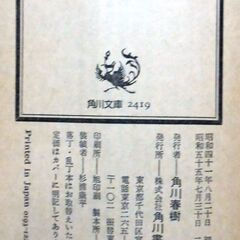 角川文庫 2419
昭和四十一年八月二十日
昭和五十五年七月三十日
発行者―角川春樹
発行所―株式会社角川書
東京都千代田区富
電話東京二六五
〒一〇二 振替東
印刷所―旭印刷 製本所
装幀者―杉浦康平
落丁・乱丁本はお取替えいた
定価はカバーに明記してあり
Printed in Japan